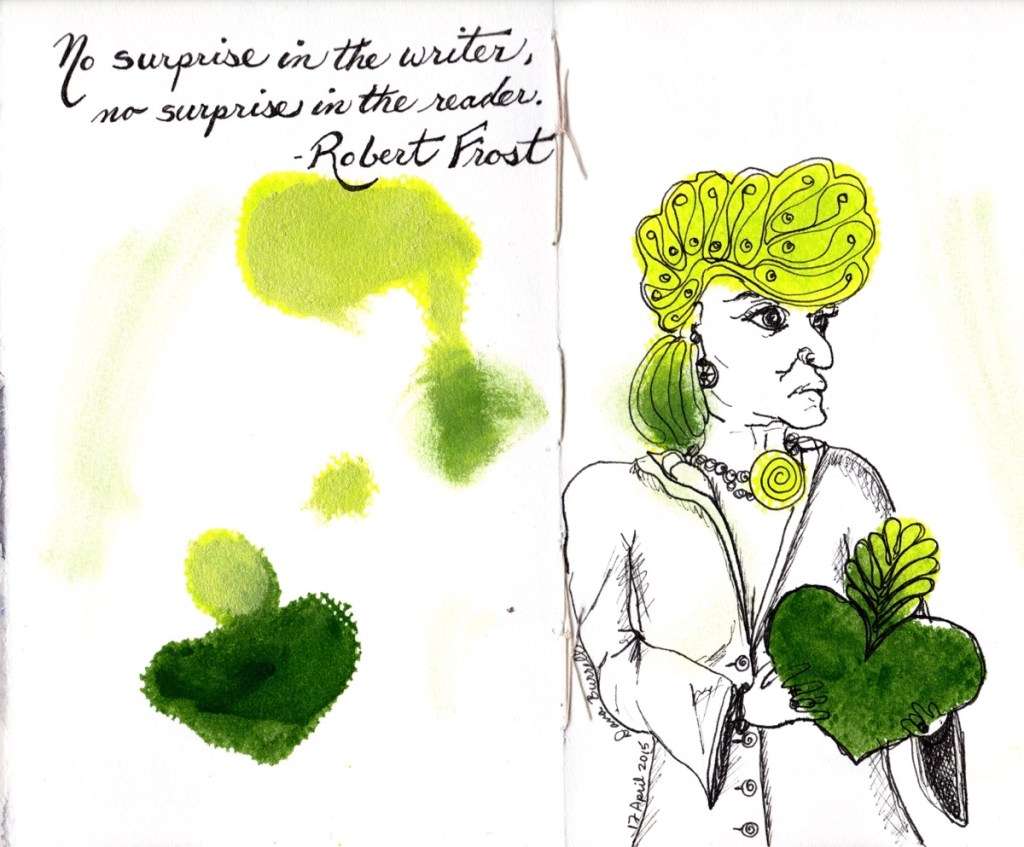 No surprise in the writer,
no surprise in the reader.
-Robert Frost
17 April 2015